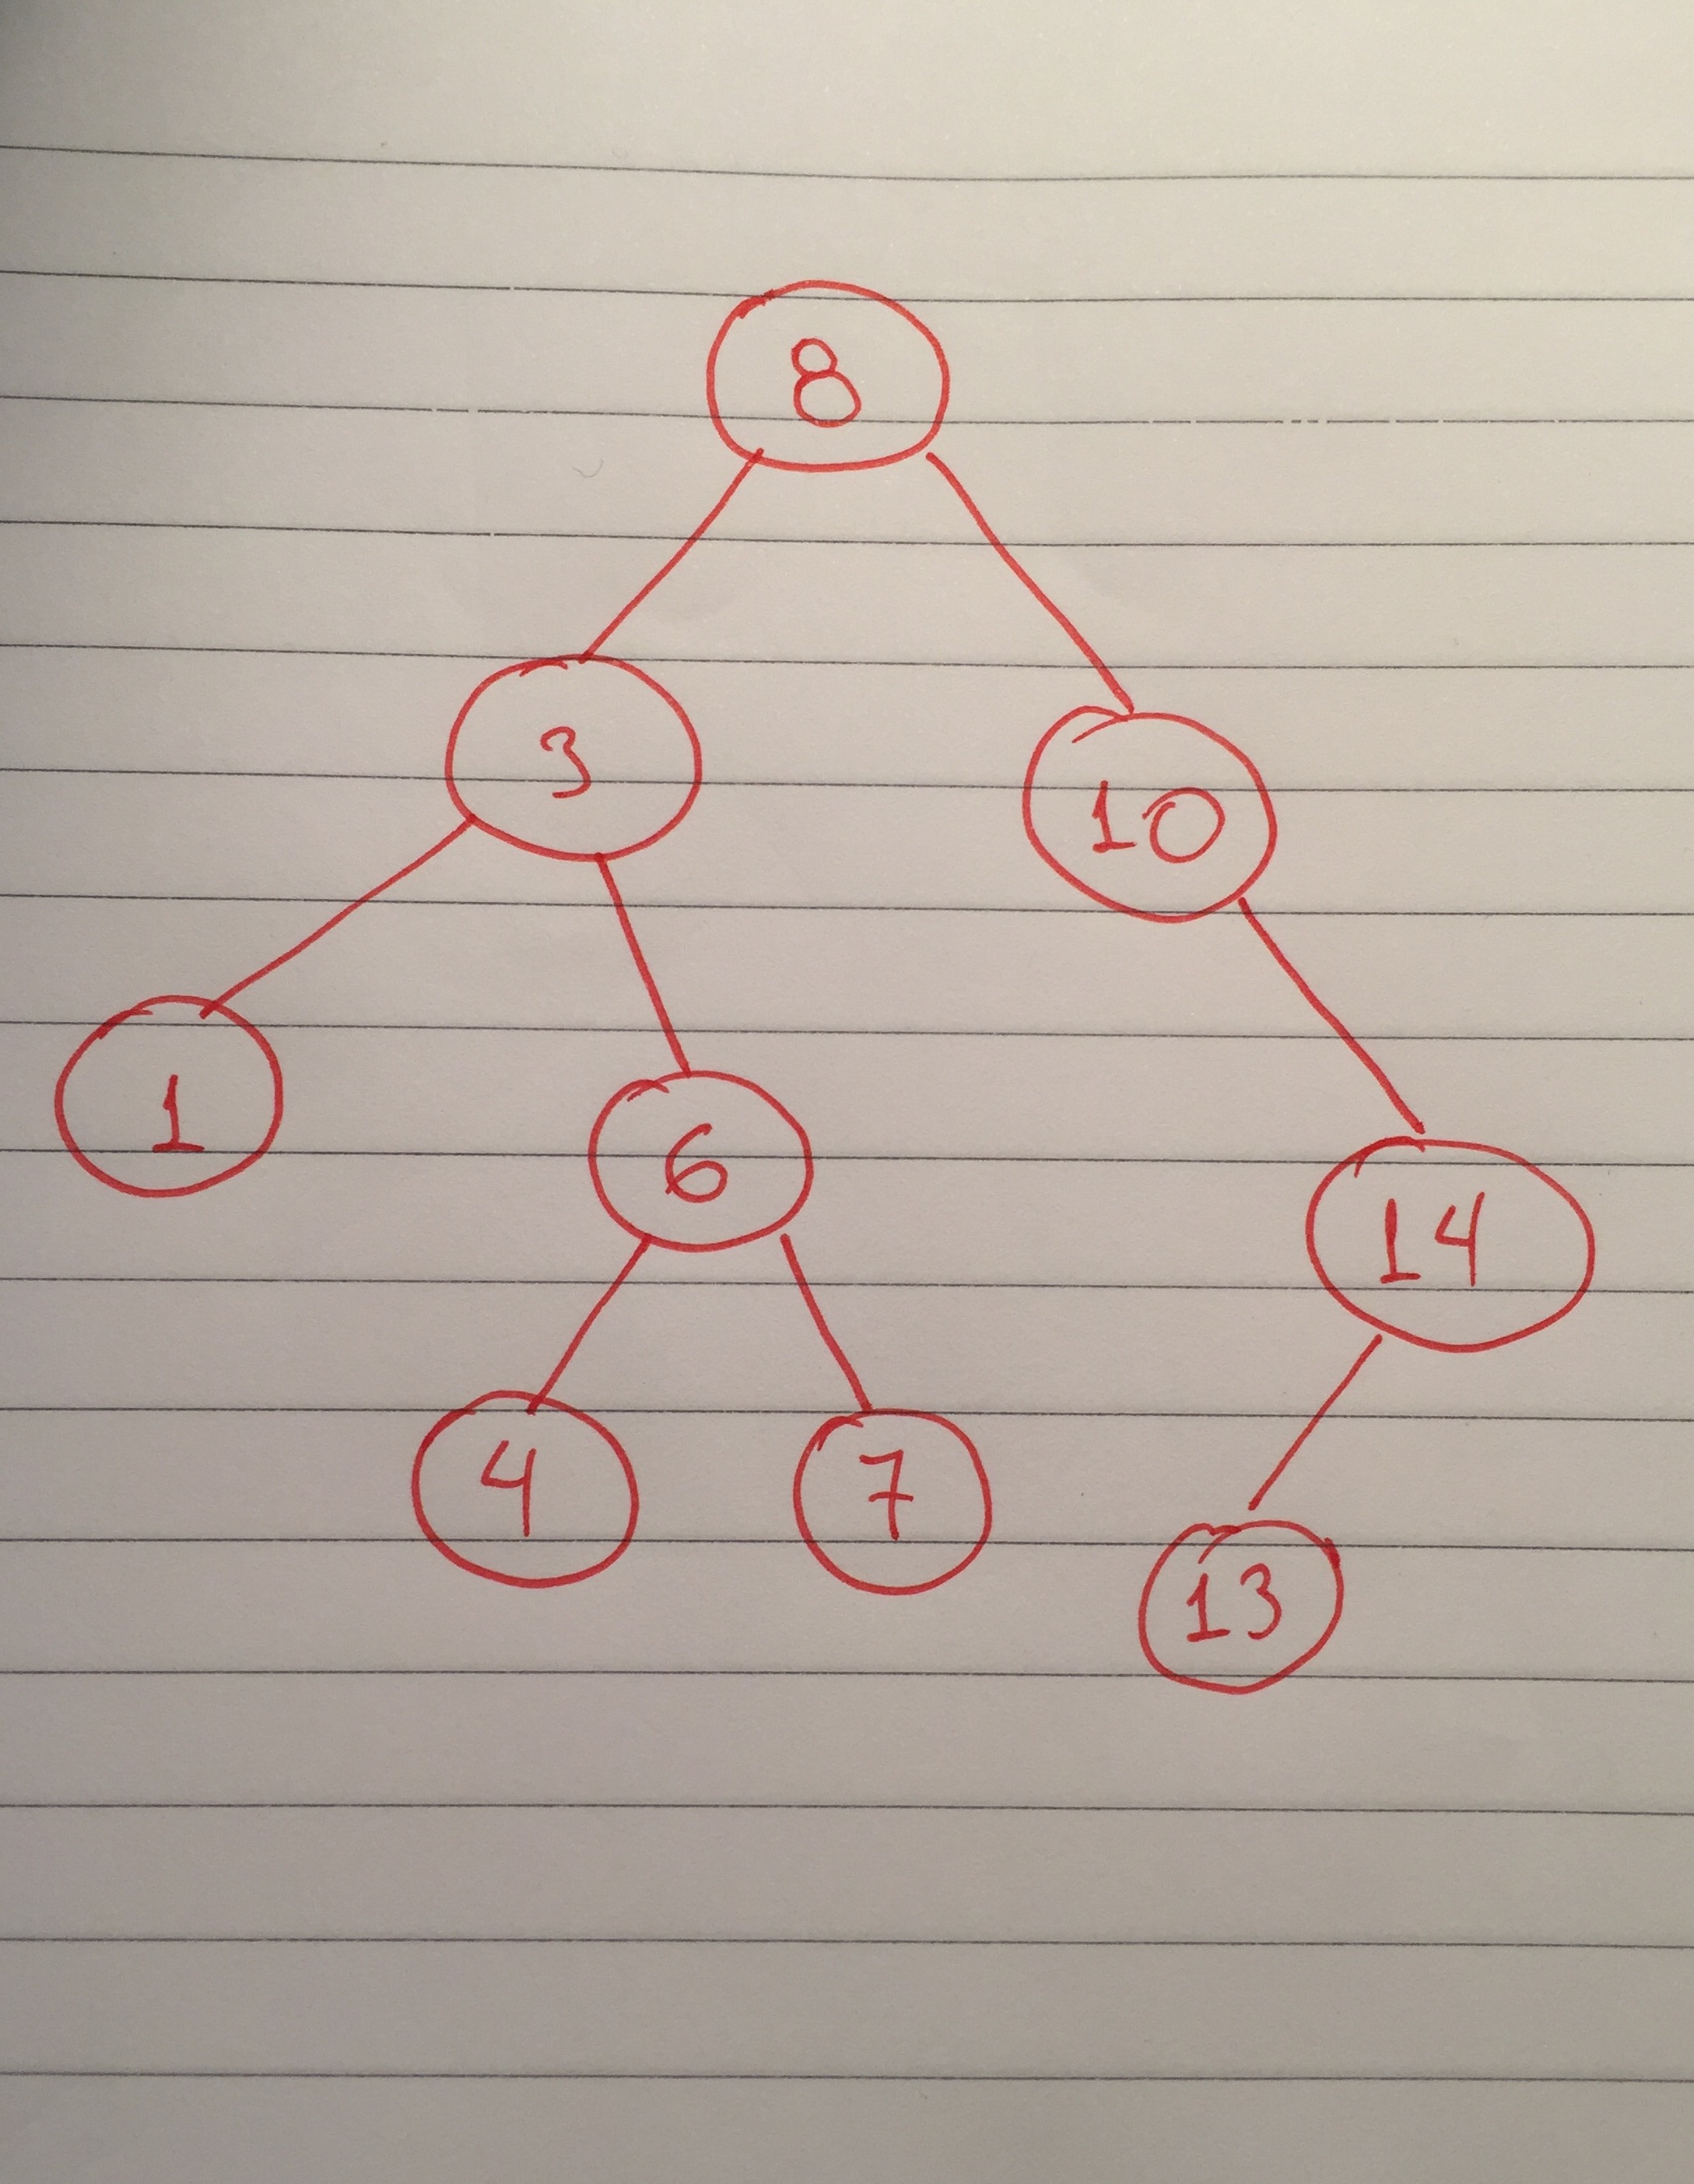 8
3
10
1
6
14
4
7
13